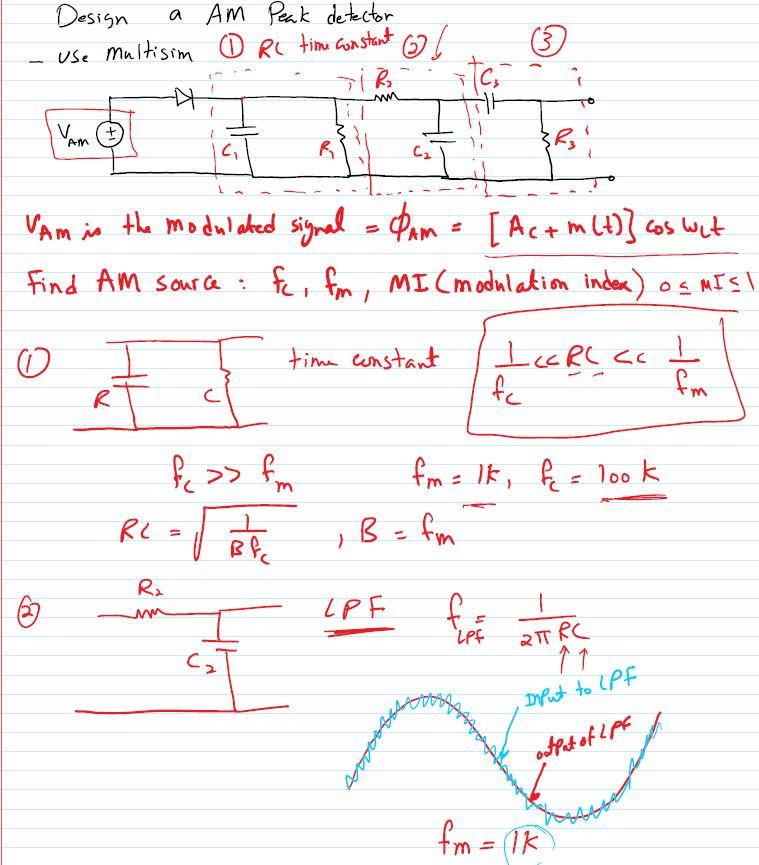 Design a AM Peak detector
- use multisim ① RC time constant ② ③
R2 C3
VAM ± C1 R1 C2 R3
VAM is the modulated signal = ϕAM = [Ac + m(t)] cos wct
Find AM source : fc, fm, MI (modulation index) 0 ≤ MI ≤ 1
① time constant 1/fc << RC << 1/fm
R C
fc >> fm fm = 1k, fc = 100 k
RC = √(1/(B fc)) , B = fm
② R2 LPF fLPF = 1/(2π RC)
C2
Input to LPF
output of LPF
fm = 1k